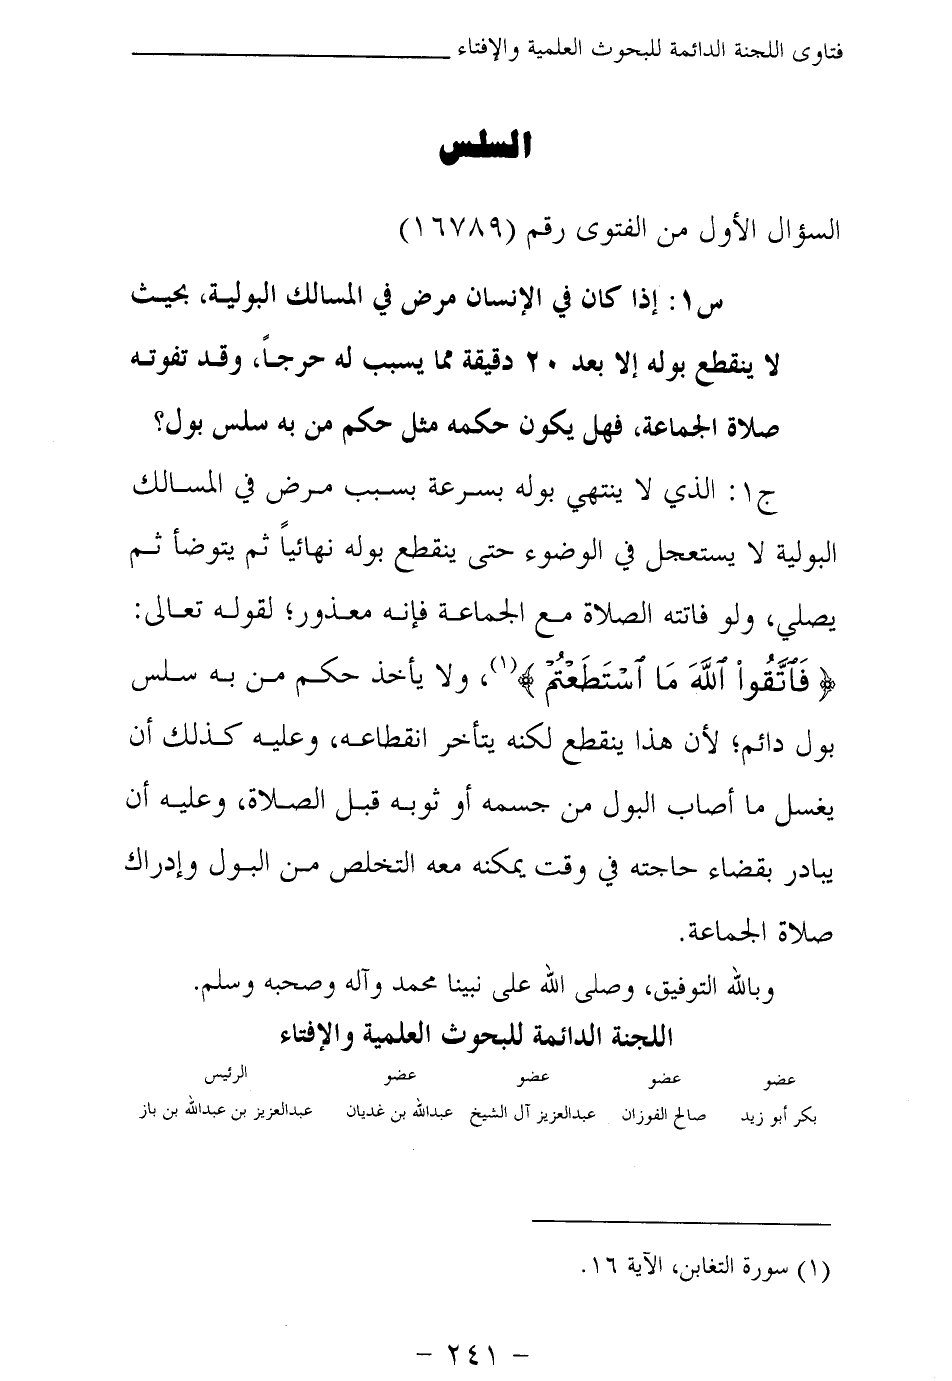 فتاوى اللجنة الدائمة للبحوث العلمية والإفتاء
السلس
السؤال الأول من الفتوى رقم (١٦٧٨٩)
س١: إذا كان في الإنسان مرض في المسالك البولية، بحيث
لا ينقطع بوله إلا بعد ٢٠ دقيقة مما يسبب له حرجاً، وقد تفوته
صلاة الجماعة، فهل يكون حكمه مثل حكم من به سلس بول؟
ج١: الذي لا ينتهي بوله بسرعة بسبب مرض في المسالك
البولية لا يستعجل في الوضوء حتى ينقطع بوله نهائياً ثم يتوضأ ثم
يصلي، ولو فاتته الصلاة مع الجماعة فإنه معذور؛ لقوله تعالى:
﴿ فَٱتَّقُوا۟ ٱللَّهَ مَا ٱسْتَطَعْتُمْ ﴾(١)، ولا يأخذ حكم من به سلس
بول دائم؛ لأن هذا ينقطع لكنه يتأخر انقطاعه، وعليه كذلك أن
يغسل ما أصاب البول من جسمه أو ثوبه قبل الصلاة، وعليه أن
يبادر بقضاء حاجته في وقت يمكنه معه التخلص من البول وإدراك
صلاة الجماعة.
وبالله التوفيق، وصلى الله على نبينا محمد وآله وصحبه وسلم.
اللجنة الدائمة للبحوث العلمية والإفتاء
عضو عضو عضو عضو الرئيس
بكر أبو زيد صالح الفوزان عبدالعزيز آل الشيخ عبدالله بن غديان عبدالعزيز بن عبدالله بن باز
(١) سورة التغابن، الآية ١٦.
– ٢٤١ –